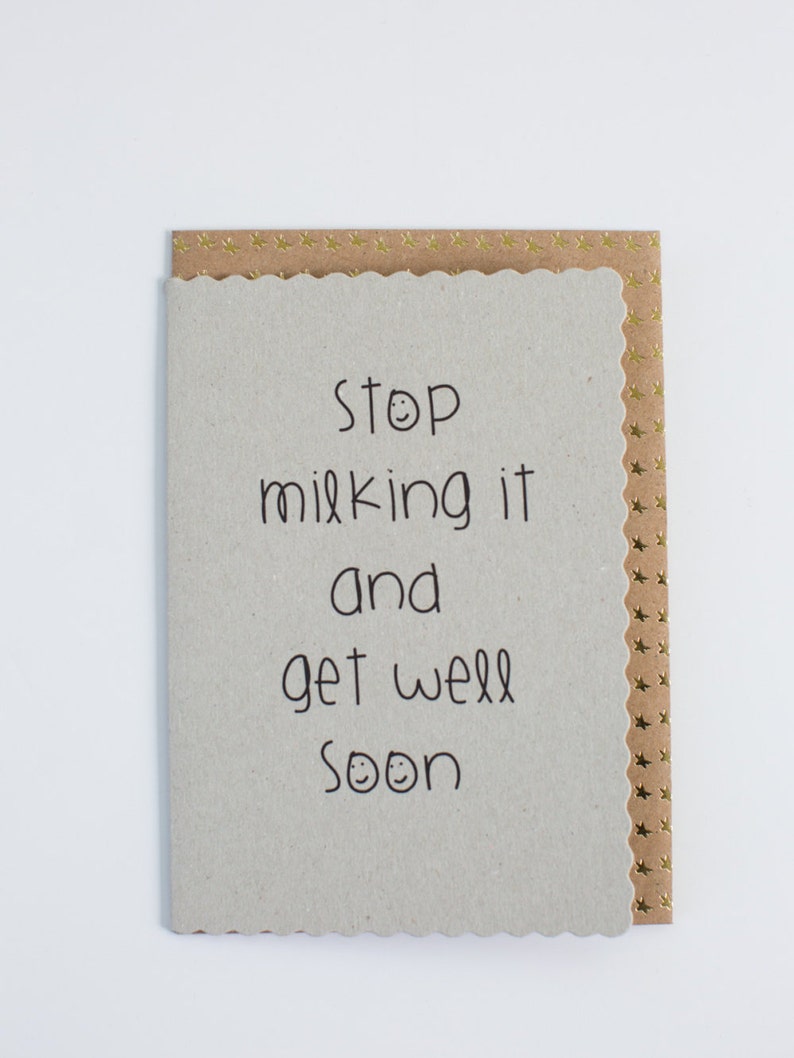 stop
milking it
and
get well
soon